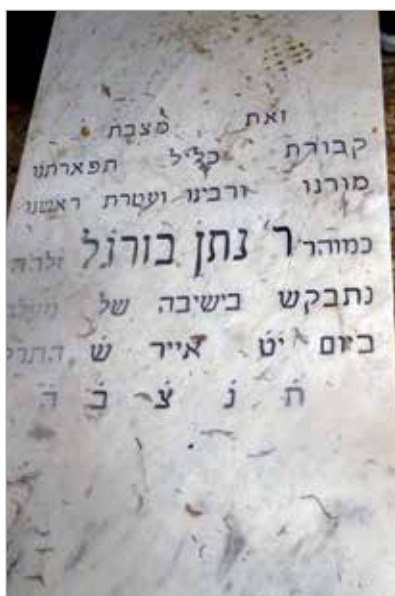 זאת מצבת
קבורת כליל תפארתנו
מורנו ורבינו ועטרת ראשנו
כמוהר״ר נתן בורגל זלה״ה
נתבקש בישיבה של מעלה
ביום יט אייר ש
ת נ צ ב ה